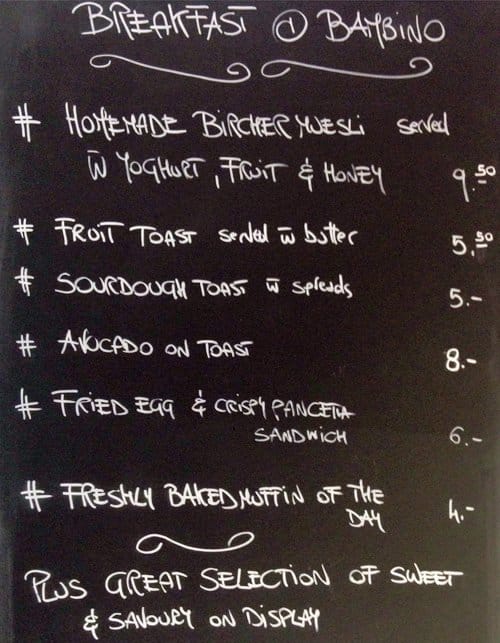 BREAKFAST @ BAMBINO
# HOMEMADE BIRCHER MUESLI served
w̄ YOGHURT, FRUIT & HONEY 9.50
# FRUIT TOAST served w̄ butter 5.50
# SOURDOUGH TOAST w̄ spreads 5.-
# AVOCADO ON TOAST 8.-
# FRIED EGG & CRISPY PANCETTA
SANDWICH 6.-
# FRESHLY BAKED MUFFIN OF THE
DAY 4.-
PLUS GREAT SELECTION OF SWEET
& SAVOURY ON DISPLAY